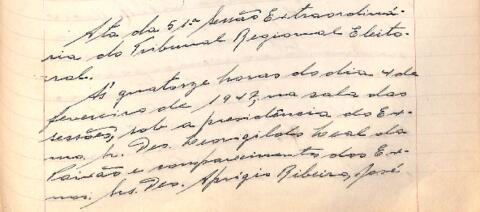 Ata da 51ª Sessão Extraordiná-
ria do Tribunal Regional Eleito-
ral.
Às quatorze horas do dia 4 de
fevereiro de 1947, na sala das
sessões, sob a presidência do Ex-
mo. Sr. Des. Leonigildo Leal da
Paixão e comparecimento dos Ex-
mos. Srs. Des. Aprigio Ribeiro, José